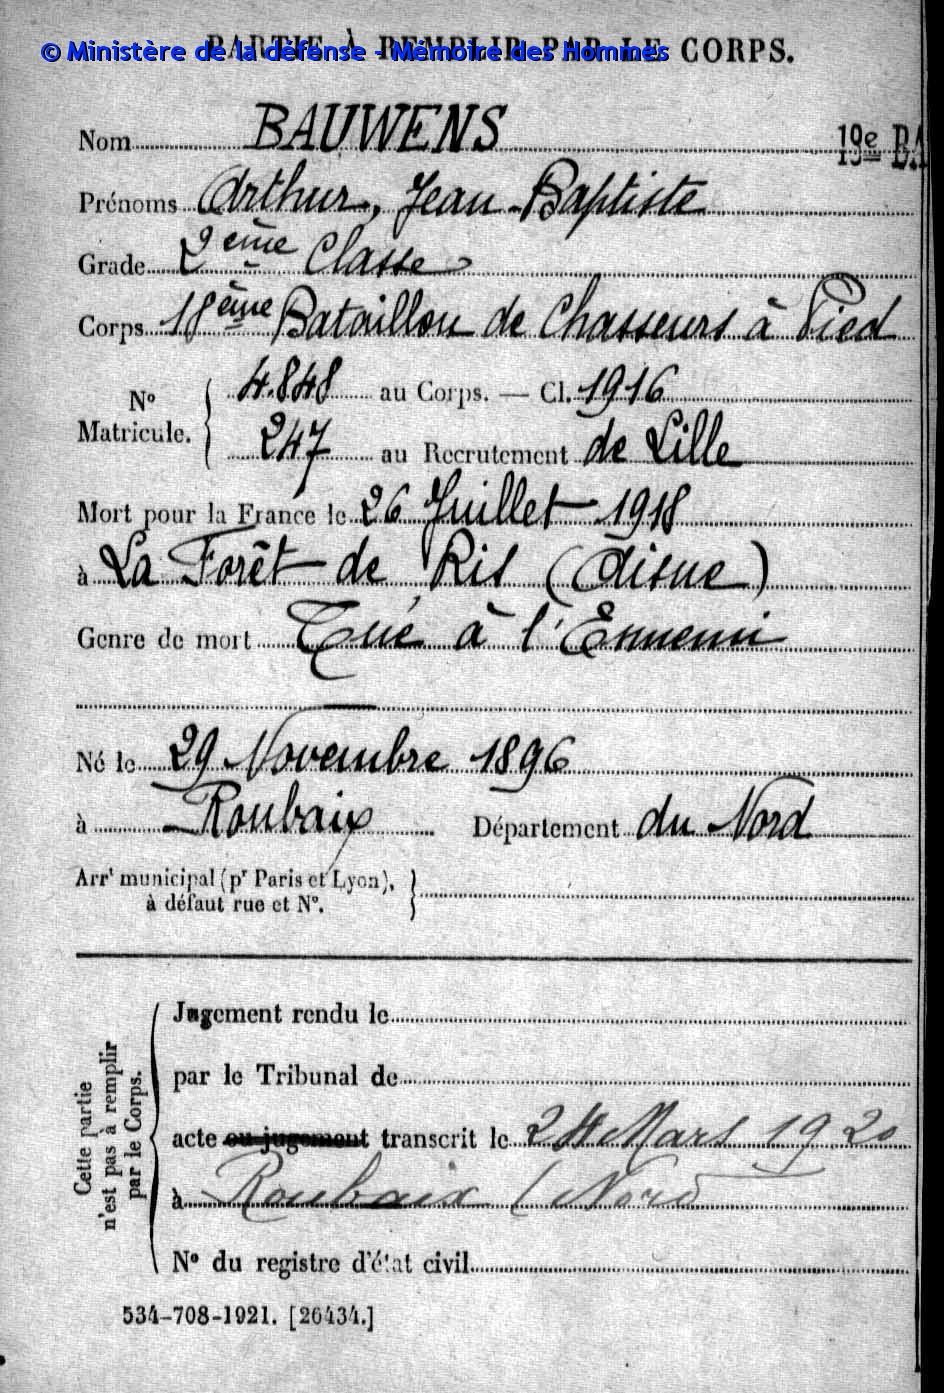 PARTIE À REMPLIR PAR LE CORPS.
© Ministère de la défense - Mémoire des Hommes
Nom BAUWENS 19e BA
Prénoms Arthur, Jean-Baptiste
Grade 2ème Classe
Corps 18ème Bataillon de Chasseurs à Pied
No Matricule. { 4.848 au Corps. — Cl. 1916
247 au Recrutement de Lille
Mort pour la France le 26 Juillet 1918
à La Forêt de Ris (Aisne)
Genre de mort Tué à l'Ennemi
Né le 29 Novembre 1896
à Roubaix Département du Nord
Arrt municipal (pr Paris et Lyon),
à défaut rue et No. }
Cette partie n'est pas à remplir par le Corps. {
Jugement rendu le
par le Tribunal de
acte ou jugement transcrit le 24 Mars 1920
à Roubaix (Nord
No du registre d'état civil
534-708-1921. [26434.]